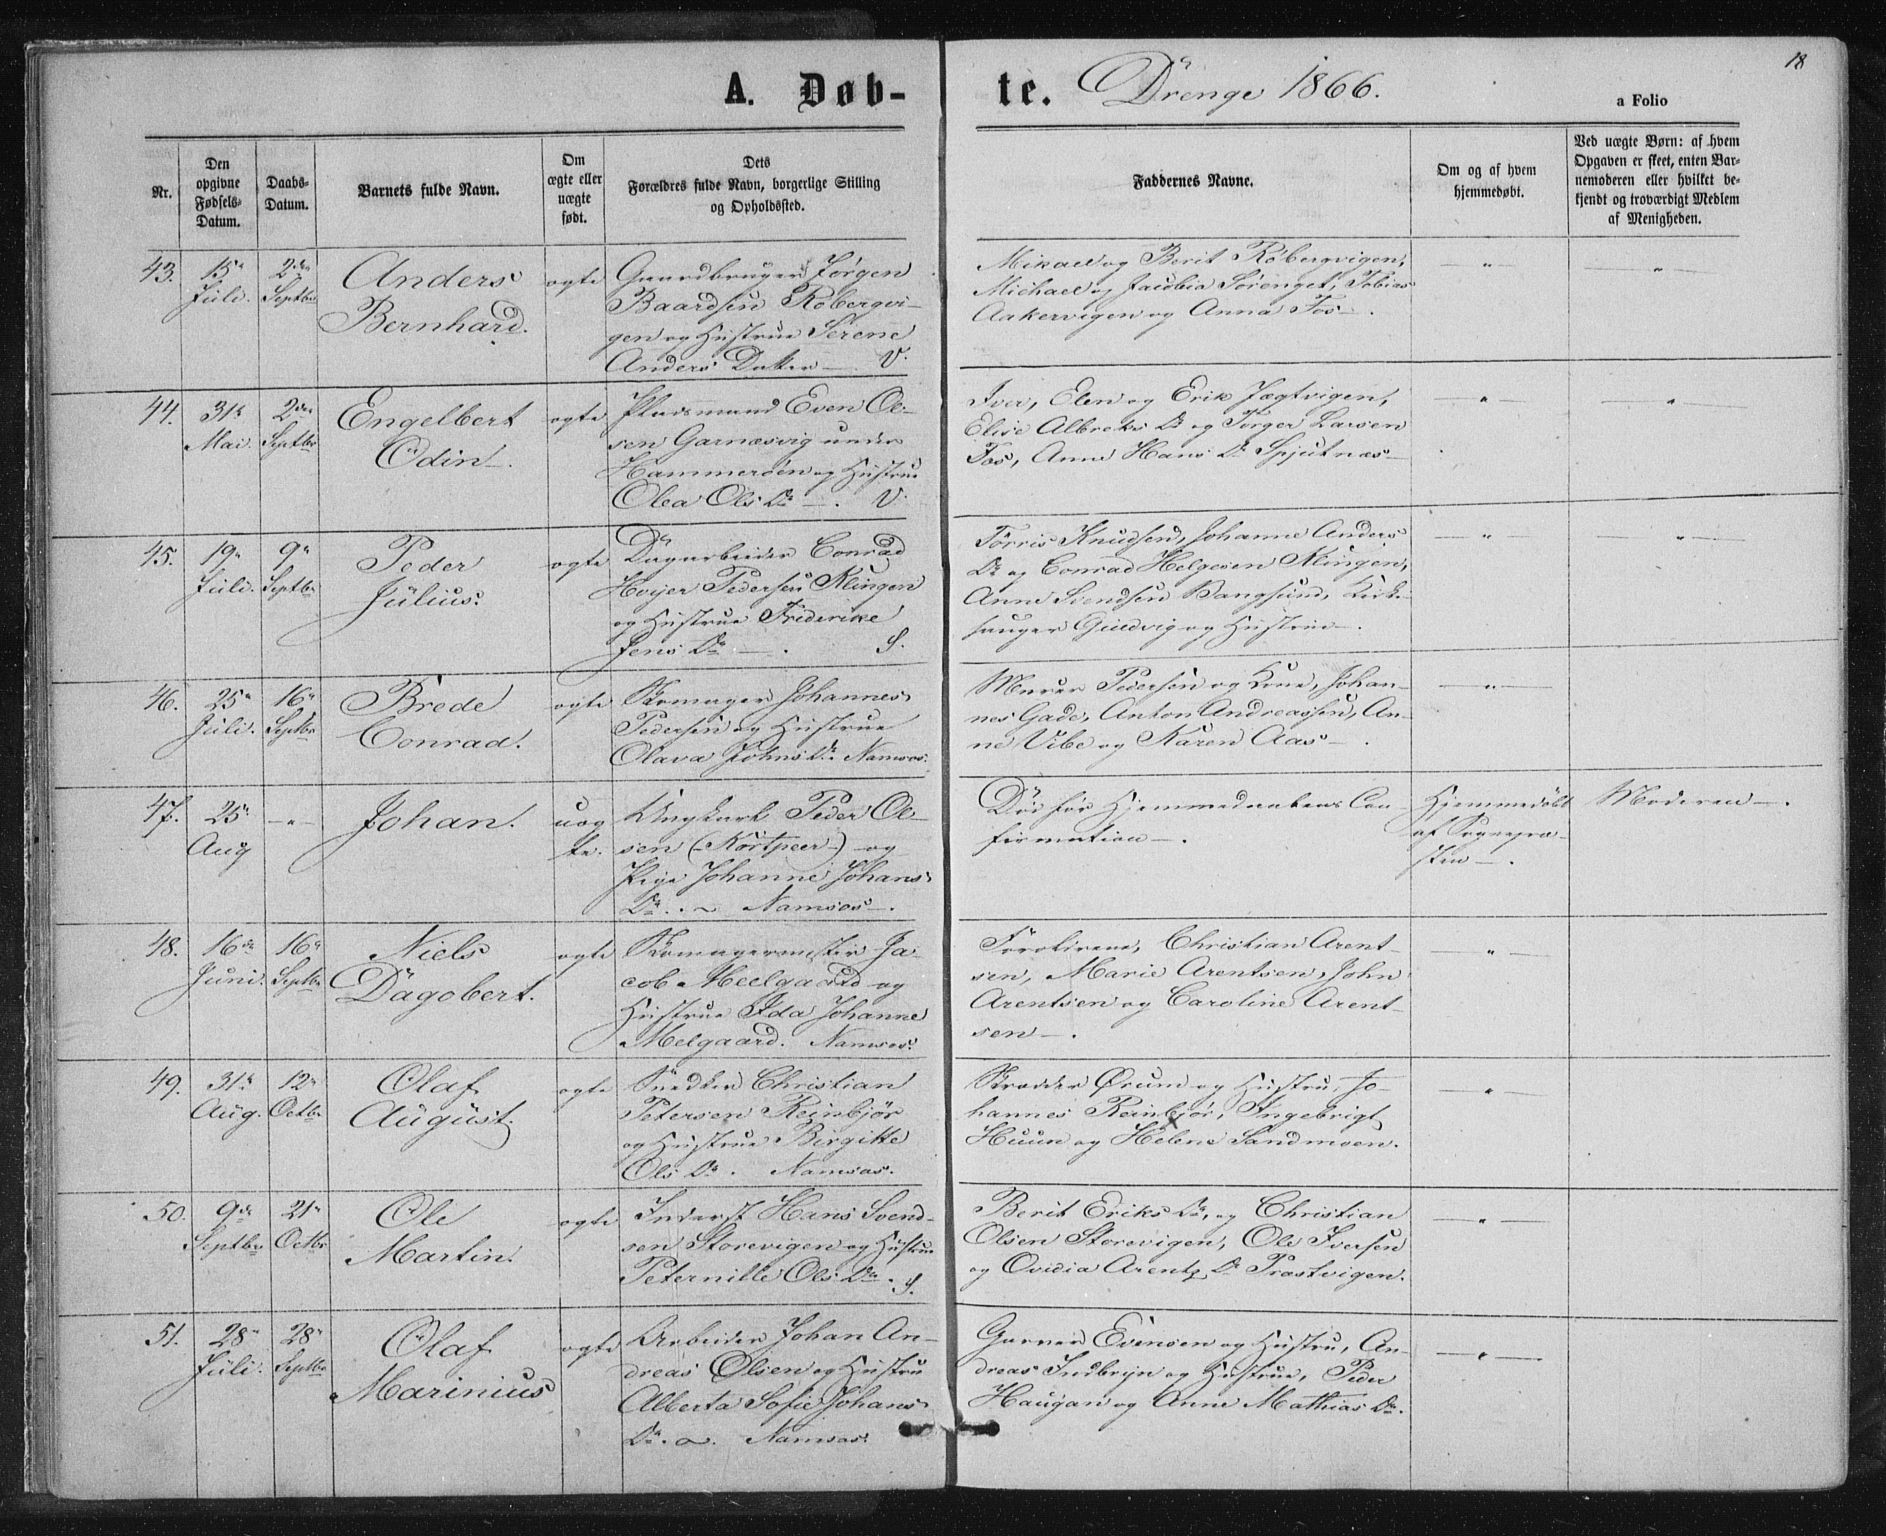 A. Døb-
te. Drenge 1866.
18
a Folio
Nr.
Den
opgivne
Fødsels-
Datum.
Daabs-
Datum.
Barnets fulde Navn.
Om
ægte eller
uægte
født.
Dets
Forældres fulde Navn, borgerlige Stilling
og Opholdssted.
Faddernes Navne.
Om og af hvem
hjemmedøbt.
Ved uægte Børn: af hvem
Opgaven er skeet, enten Bar-
nemoderen eller hvilket be-
kjendt og troværdigt Medlem
af Menigheden.
43.
15de
Juli.
2den
Septbr
Anders
Bernhard.
ægte
Gaardbruger Jørgen
Baardsen Røbergvi-
gen og Hustrue Serene
Anders Datter —. V.
Mikael og Berit Røbergvigen,
Michael og Jacobia Sørenget, Tobias
Aakervigen og Anna Fos —.
— " —
— " —
44.
31te
Mai.
2den
Septbr
Engelbert
Odin —.
ægte
Pladsmand Even Ol-
sen Garnæsvig under
Hammerøen og Hustrue
Olea Ols Dr —. V.
Iver, Elen og Erik Jægtvigen,
Elise Albreks Dr og Torger Larsen
Fos, Anne Hans Dr Spjutnæs —
— " —
— " —
45.
19de
Juli.
9de
Septbr
Peder
Julius.
ægte
Dagarbeider Conrad
Hoijer Pedersen Klingen
og Hustrue Friderike
Jens Dr —. S.
Tørris Knudsen, Johanne Anders
Dr og Conrad Helgesen Klingen,
Anne Svendsen Bangsund, Kirke-
sanger Gjeldvig og Hustrue —.
— " —
— " —
46.
25de
Juli.
16de
Septbr
Brede
Conrad.
ægte
Skomager Johannes
Pedersen og Hustrue
Olava Johns Dr. Namsos.
Murer Pedersen og Kone, Johan-
nes Gade, Anton Andreassen, An-
ne Vibe og Karen Aas —.
— " —
47.
25de
Aug
— " —
Johan.
uæg
te.
Ungkarl Peder Ol-
sen (Kortpeer) og
Pige Johanne Johans
Dr. — Namsos —.
Død før Hjemmedaabens Con-
firmation —.
Hjemmedøbt
af Sognepræ-
sten —.
Moderen —.
48.
16de
Juni.
16de
Septbr
Niels
Dagobert.
ægte
Skomagermester Ja-
cob Meelgaard og
Hustrue Ida Johanne
Melgaard. Namsos.
Forældrene, Christian Arent-
sen, Marie Arentsen, John
Arentsen og Caroline Arent-
sen —.
— " —
49.
31te
Aug.
12te
Octbr
Olaf
August.
ægte
Snedker Christian
Petersen Reinbjør
og Hustrue Birgitte
Ols Dr. Namsos.
Skrædder Ørum og Hustru, Jo-
hannes Reinbjør, Ingebrigt
Huun og Helene Sandmoen.
— " —
50.
9de
Septbr
21de
Octbr
Ole
Martin.
ægte
Inderst Hans Svend-
sen Storevigen og Hustrue
Peternille Ols Dr. S.
Berit Eriks Dr, og Christian
Olsen Storevigen, Ole Iversen
og Ovidia Arentz Dr Præstvigen.
— " —
51.
28de
Juli.
28de
Septbr
Olaf
Marinius
ægte
Arbeider Johan An-
dreas Olsen og Hustru
Alberta Sofie Johans
Dr. Namsos.
Garver Evensen og Hustru, An-
dreas Indbryn og Hustrue, Peder
Haugan og Anne Mathias Dr.
— " —